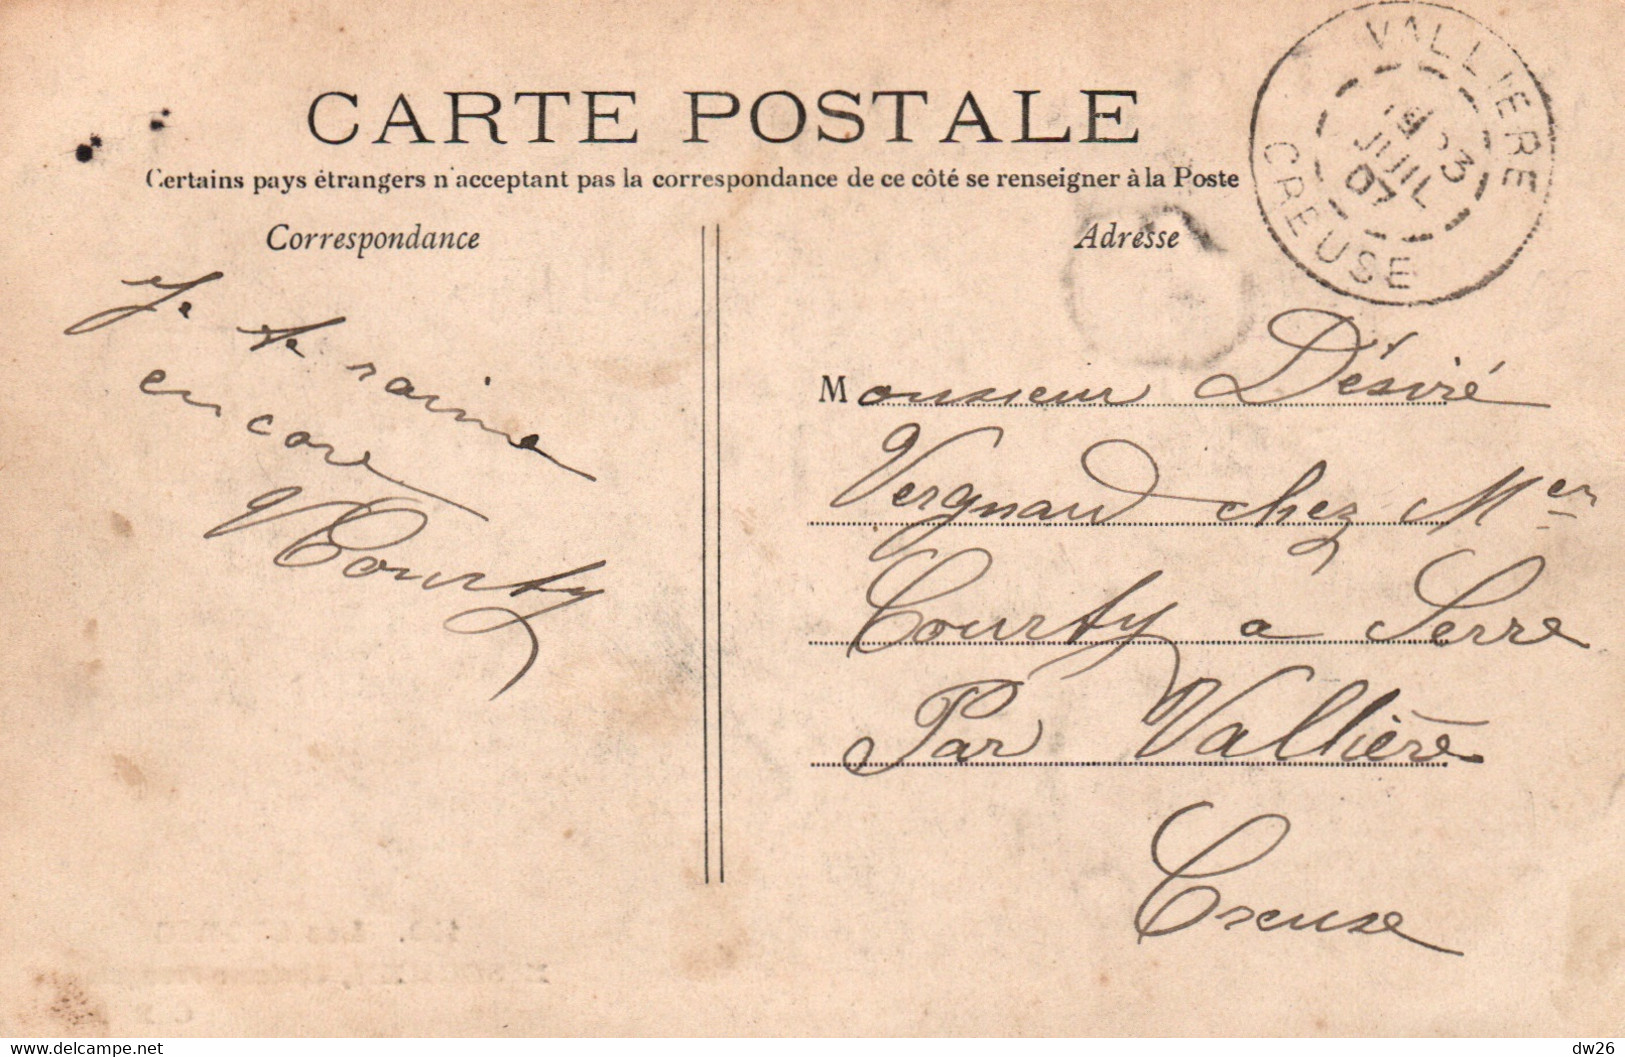 CARTE POSTALE
Certains pays étrangers n'acceptant pas la correspondance de ce côté se renseigner à la Poste
Correspondance
Je te raime
encore
Courty
Adresse
Monsieur Désiré
Vergnaud chez Mer
Courty a Serre
Par Vallière
Creuse
VALLIERE
JUIL
07
CREUSE
dw26